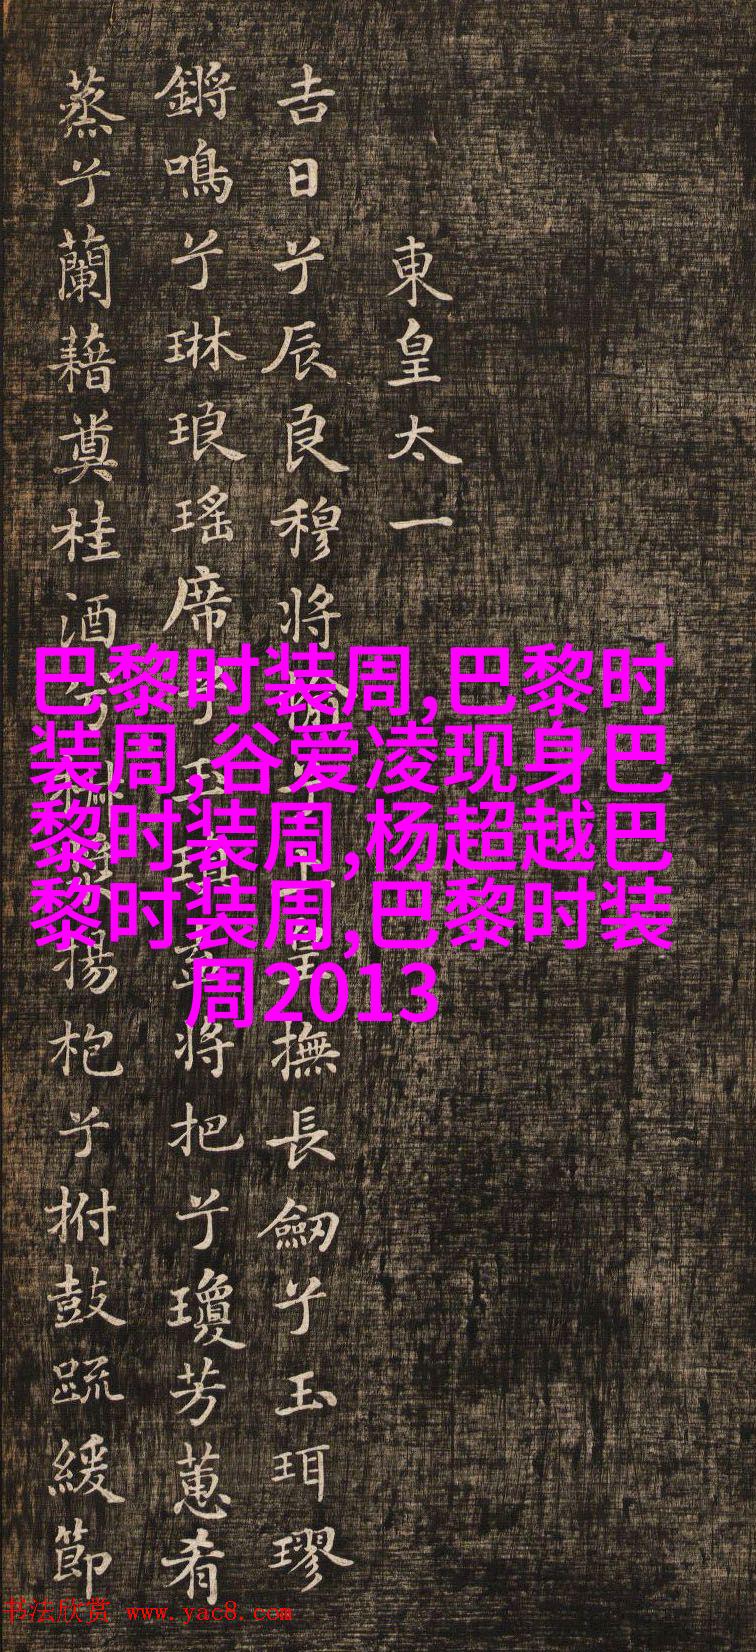 東皇太一
吉日兮辰良穆将愉兮上皇撫長劔兮玉珥璆
鏘鳴兮琳琅瑶席兮玉瑱盍将把兮瓊芳蕙肴
蒸兮蘭藉奠桂酒兮椒漿揚枹兮拊鼓疏緩節
巴黎时装周,巴黎时
装周,谷爱凌现身巴
黎时装周,杨超越巴
黎时装周,巴黎时装
周2013
书法欣赏 www.yac8.com